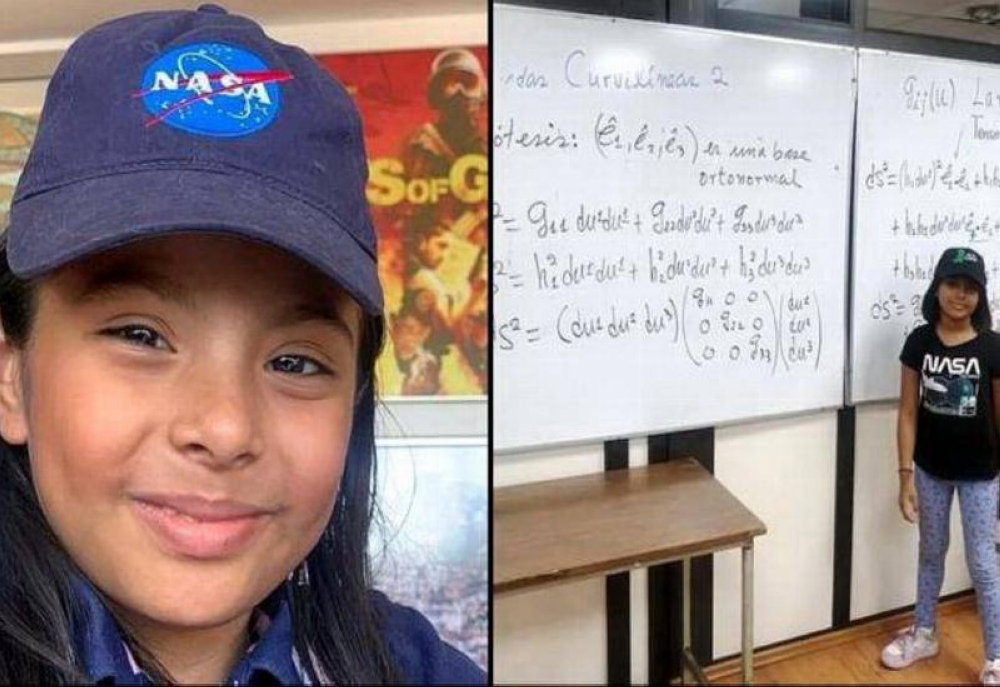 NASA
SOFG
Curvilíneas 2
ótesis: (ê₁, ê₂, ê₃) es una base
ortonormal
² = g₁₁ du¹du¹ + g₂₂ du²du² + g₃₃ du³du³
² = h₁² du¹du¹ + h₂² du²du² + h₃² du³du³
s² = (du¹ du² du³) (g₁₁ 0 0
0 g₂₂ 0
0 0 g₃₃) (du¹
du²
du³)
gᵢⱼ(u) La
ds² = (h₁du¹)² ê₁·ê₁ + h₁
ds² = g
NASA